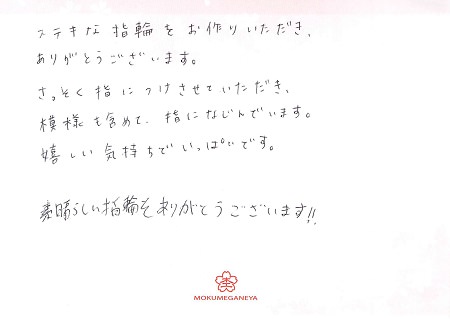 ステキな指輪をお作りいただき、
ありがとうございます。
さっそく指につけさせていただき、
模様も含めて、指になじんでいます。
嬉しい気持ちでいっぱいです。
素晴らしい指輪をありがとうございます!!
MOKUMEGANEYA